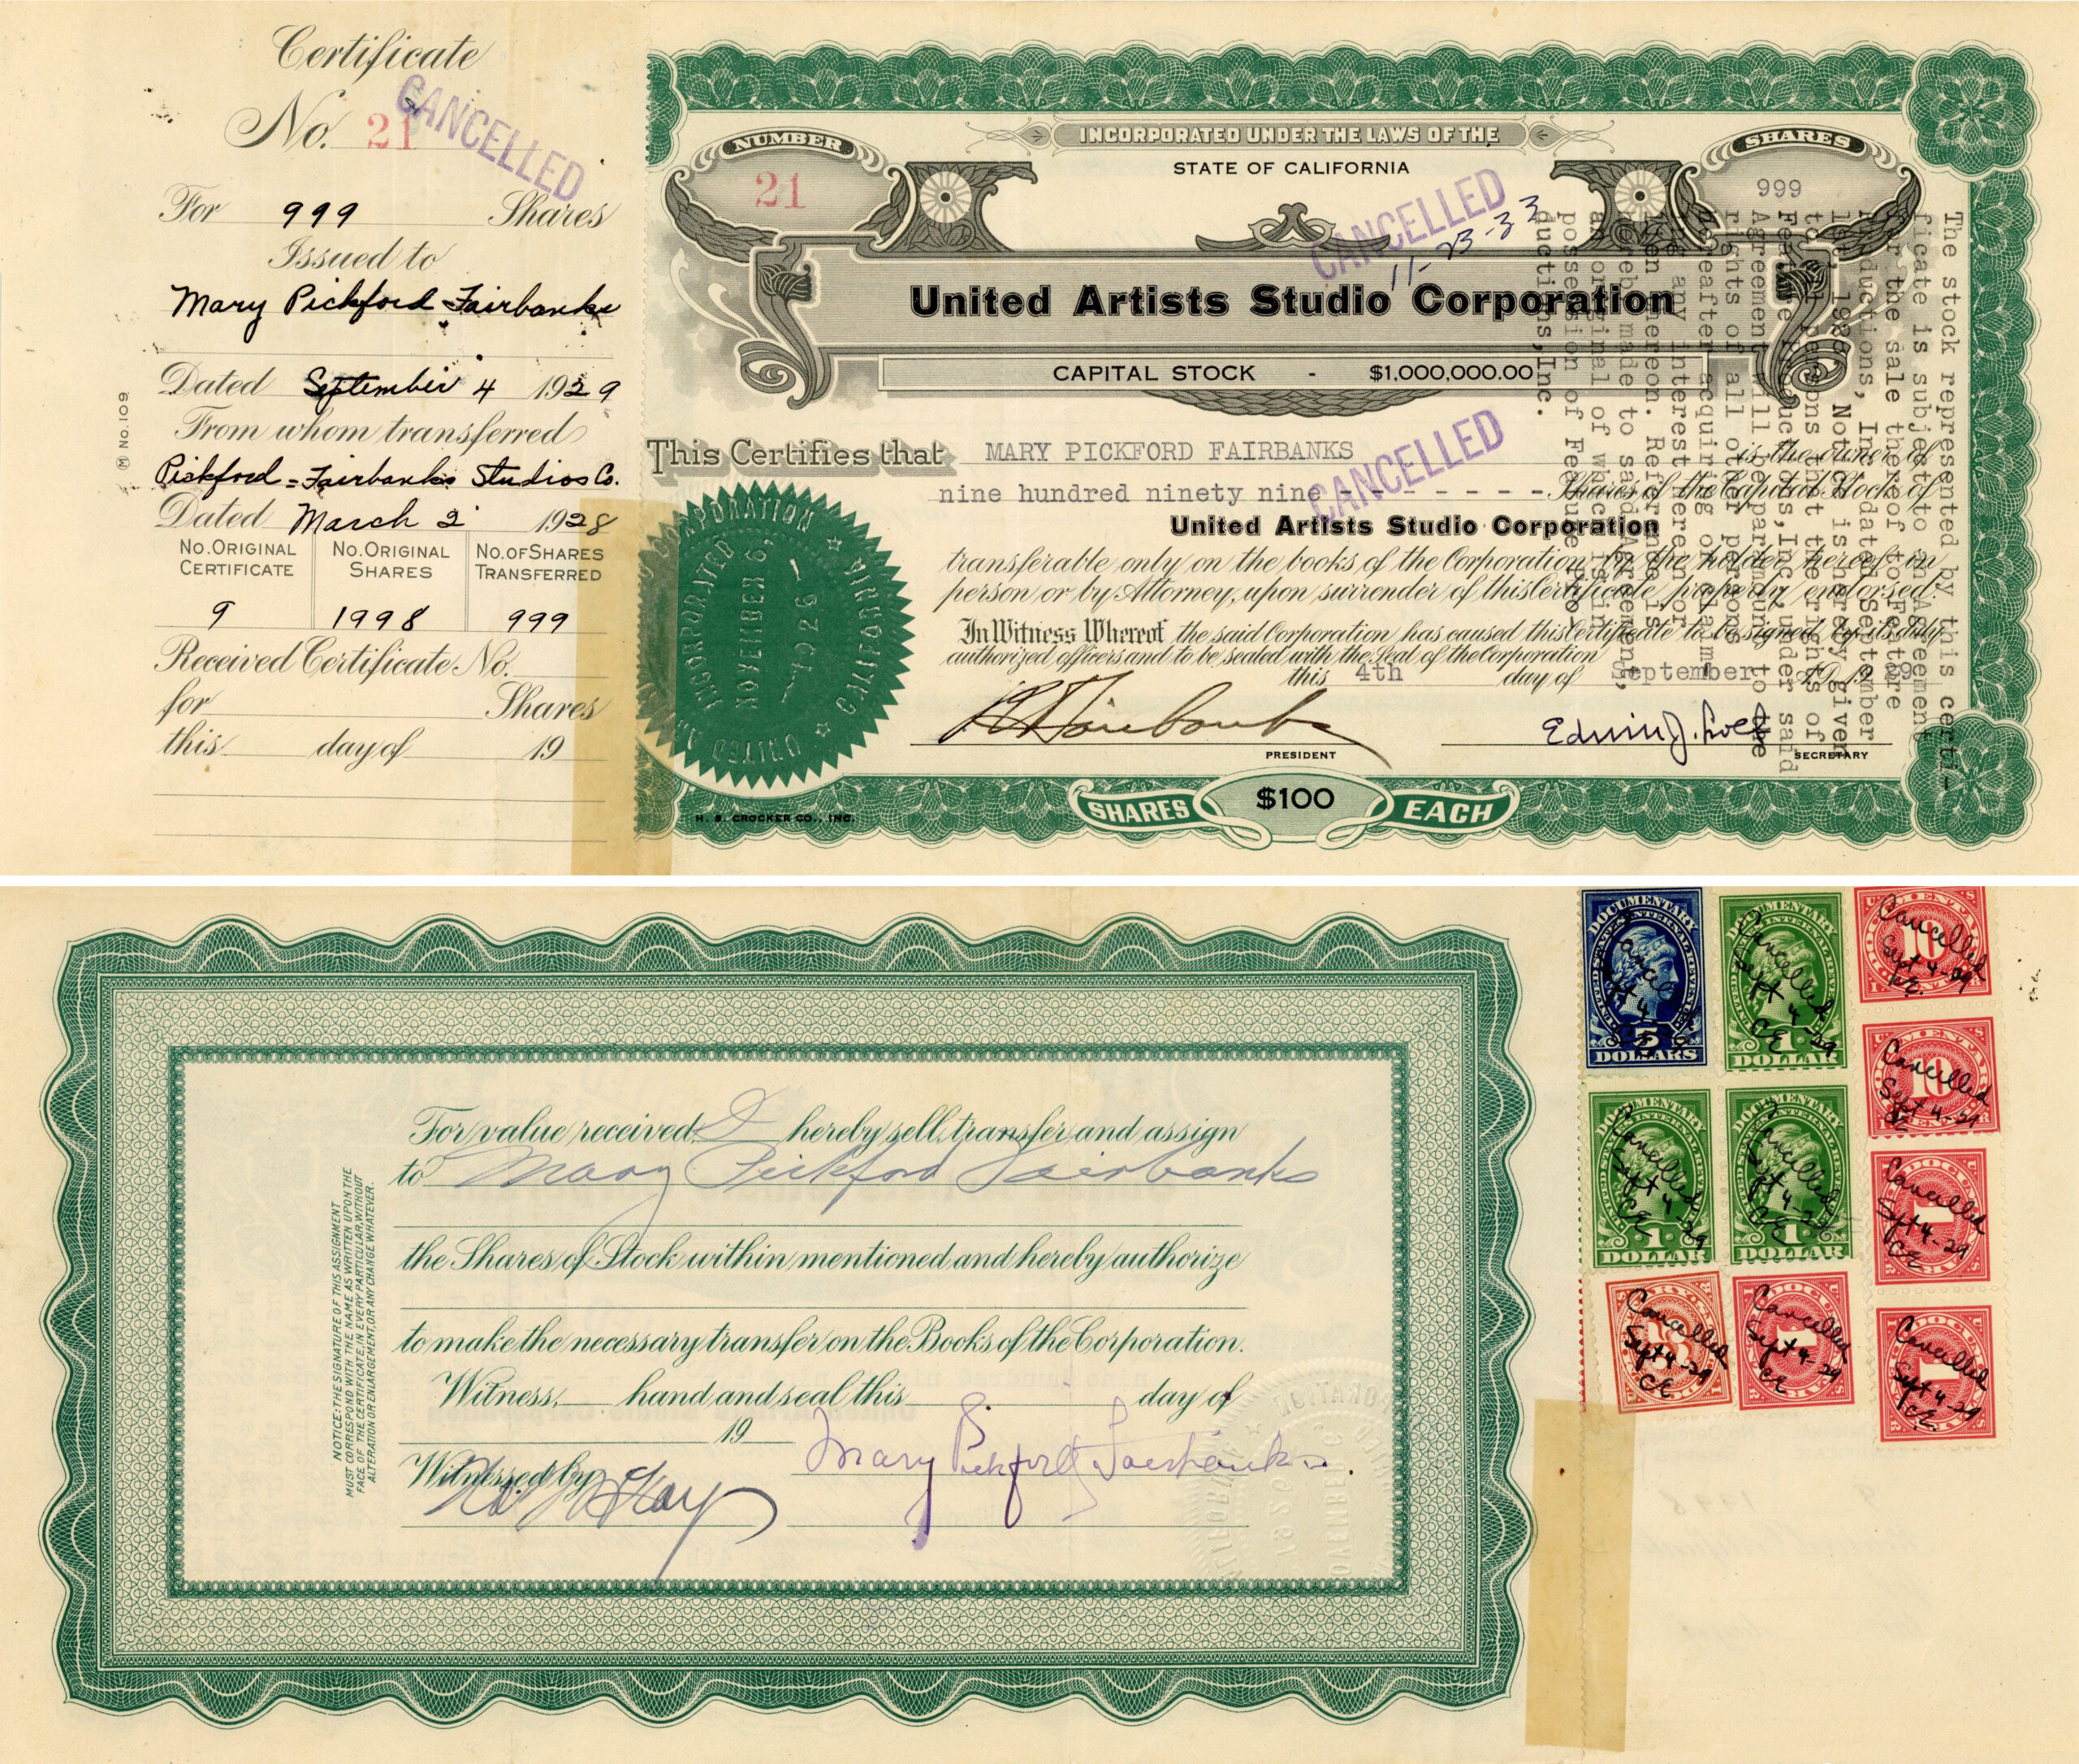 Certificate
No. 21
CANCELLED
For 999 Shares
Issued to
Mary Pickford Fairbanks
Dated September 4 1929
From whom transferred
Pickford=Fairbanks Studios Co.
Dated March 2 1928
No. ORIGINAL CERTIFICATE
No. ORIGINAL SHARES
No. OF SHARES TRANSFERRED
9 1998 999
Received Certificate No.
for Shares
this day of 19
NUMBER
21
INCORPORATED UNDER THE LAWS OF THE
STATE OF CALIFORNIA
SHARES
999
CANCELLED
11-23-33
United Artists Studio Corporation
CAPITAL STOCK - $1,000,000.00
This Certifies that MARY PICKFORD FAIRBANKS is the owner of
CANCELLED
nine hundred ninety nine - - - - - - - - Shares of the Capital Stock of
United Artists Studio Corporation
transferable only on the books of the Corporation by the holder hereof in
person or by Attorney, upon surrender of this Certificate properly endorsed.
In Witness Whereof the said Corporation has caused this Certificate to be signed by its duly
authorized officers and to be sealed with the Seal of the Corporation
this 4th day of September A.D. 1929
PRESIDENT
SECRETARY
SHARES $100 EACH
H. S. CROCKER CO., INC.
INCORPORATED
NOVEMBER 6,
1926
CALIFORNIA
The stock represented by this certi-
ficate is subject to an Agreement
for the sale thereof to Feature
Productions, Inc. dated September
1st, 1929. Notice is hereby given
to all persons that the rights of
Feature Productions, Inc. under said
Agreement will be paramount to the
rights of all other persons
hereafter acquiring or claiming
any interest herein or
lien hereon. Reference is
hereby made to said Agreement,
an original of which is in
possession of Feature Pro-
ductions, Inc.
For value received I hereby sell, transfer and assign
to Mary Pickford Fairbanks
the Shares of Stock within mentioned and hereby authorize
to make the necessary transfer on the Books of the Corporation.
Witness, hand and seal this day of
19
Mary Pickford Fairbanks.
Witnessed by
NOTICE: THE SIGNATURE OF THIS ASSIGNMENT
MUST CORRESPOND WITH THE NAME AS WRITTEN UPON THE
FACE OF THE CERTIFICATE, IN EVERY PARTICULAR, WITHOUT
ALTERATION OR ENLARGEMENT, OR ANY CHANGE WHATEVER.
DOCUMENTARY
5
DOLLARS
DOCUMENTARY
1
DOLLAR
Cancelled
Sept 4-29
CE
10
Cancelled
Sept 4-29
10
Cancelled
Sept 4-29
DOCUMENTARY
1
DOLLAR
Cancelled
Sept 4-29
CE
DOCUMENTARY
1
DOLLAR
Cancelled
Sept 4-29
CE
1
Cancelled
Sept 4-29
CE
Cancelled
Sept 4-29
CE
1
Cancelled
Sept 4-29
CE
1
Cancelled
Sept 4-29
CE